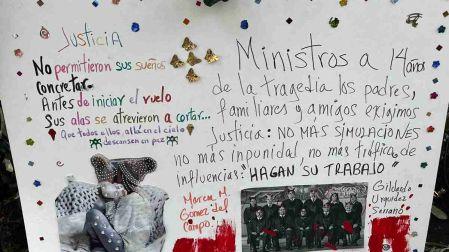 Justicia
No permitieron sus sueños
concretar.
Antes de iniciar el vuelo
Sus alas se atrevieron a cortar...
Que todos ellos, allá en el cielo
descansen en paz
Ministros a 14 años
de la tragedia los padres,
familiares y amigos exigimos
Justicia: NO MÁS SIMULACIONES
no más inpunidad, no más tráfico de
influencias: "HAGAN SU TRABAJO"
Marcia M.
Gomez del
Campo.
Gildardo
Urquidez
Serrano